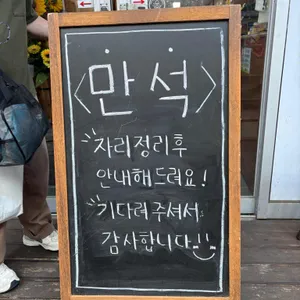 <만석>
자리정리후
안내해드려요!
기다려주셔서
감사합니다